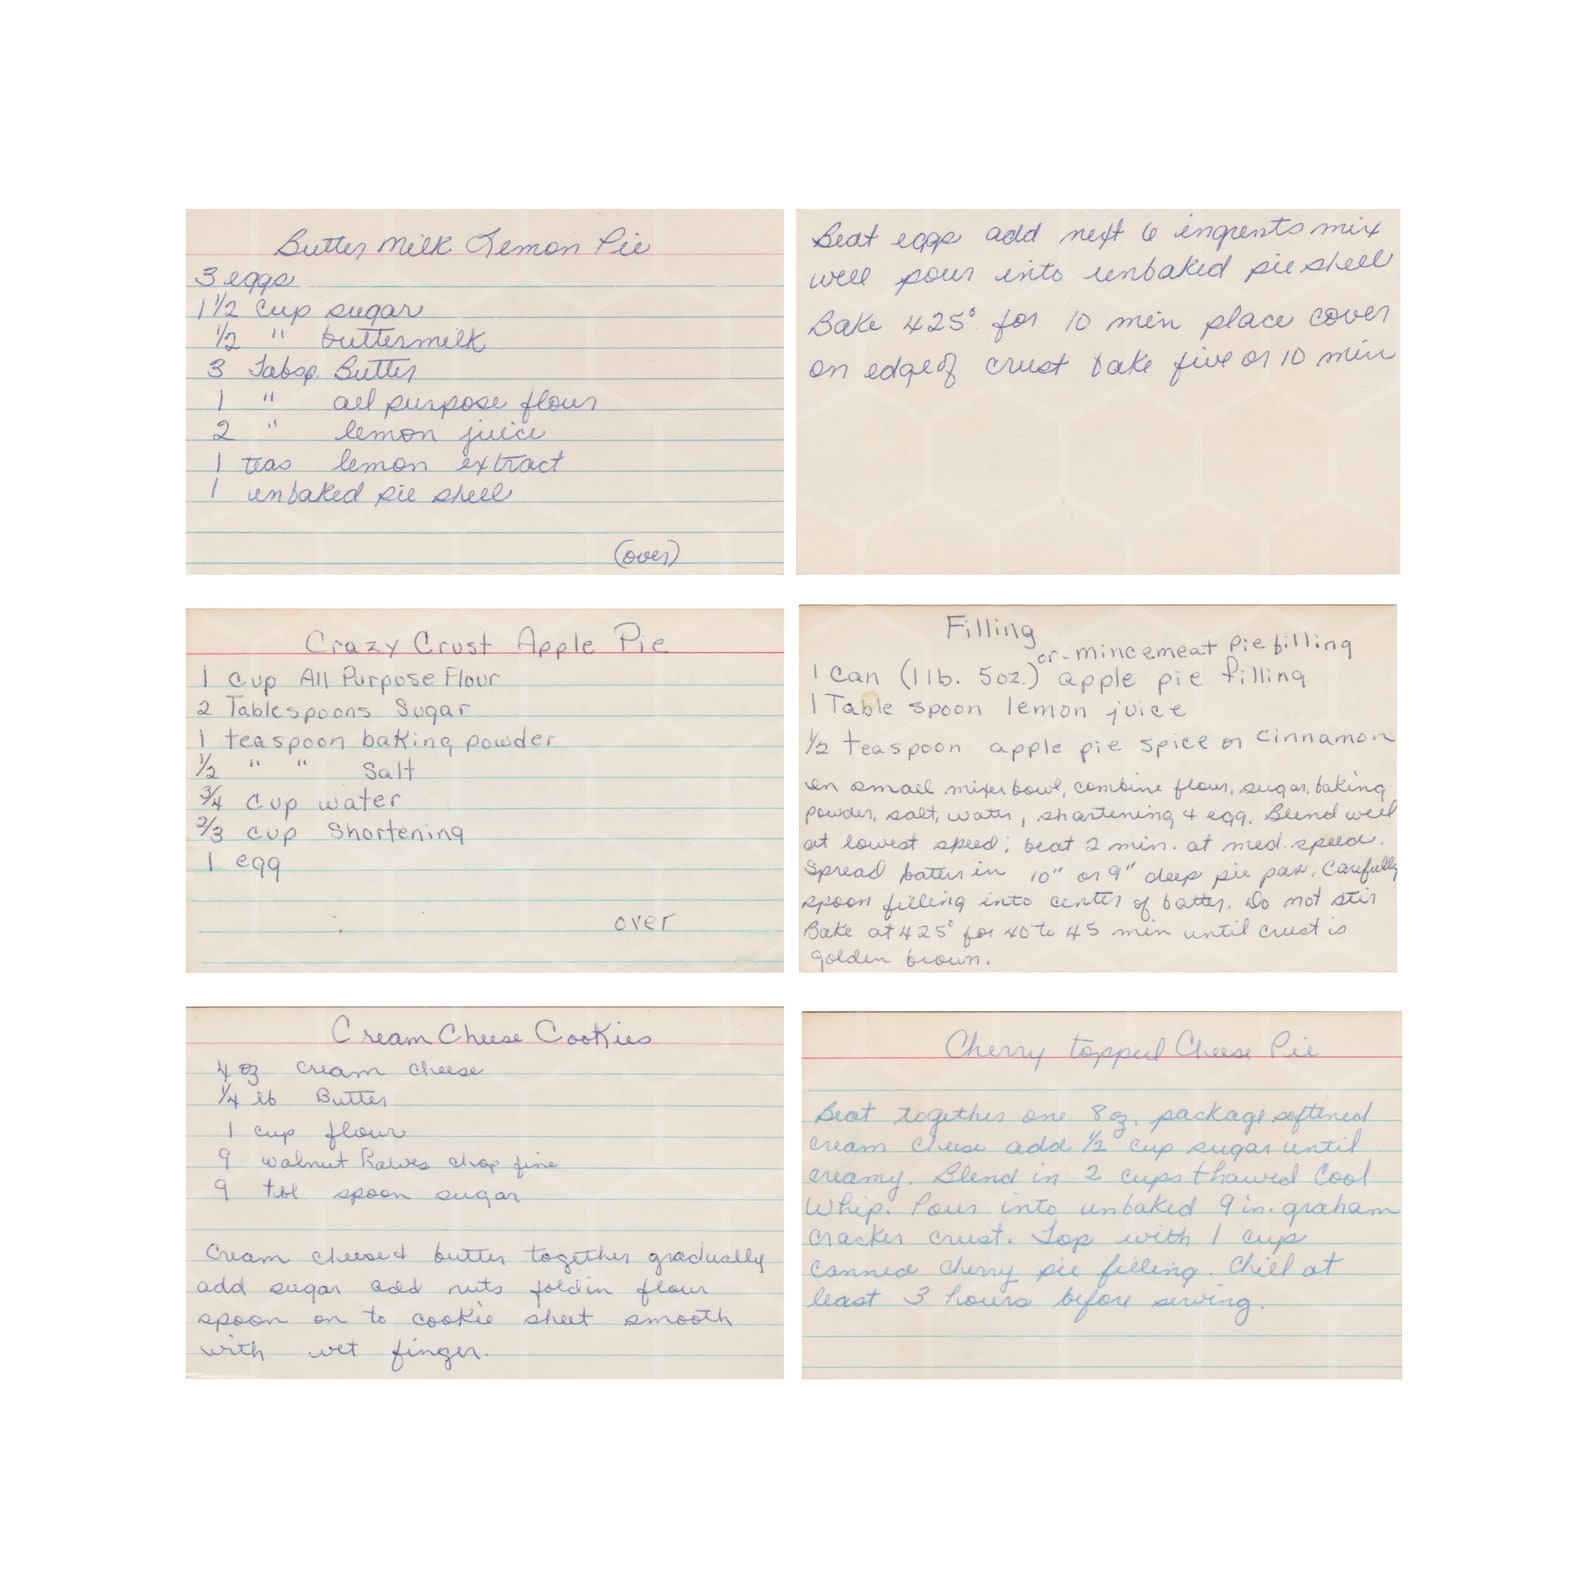 Butter Milk Lemon Pie
3 eggs
1 1/2 cup sugar
1/2 " buttermilk
3 Tabsp. Butter
1 " all purpose flour
2 " lemon juice
1 teas lemon extract
1 unbaked pie shell
(over)
Beat eggs add next 6 ingrents mix
well pour into unbaked pie shell
Bake 425° for 10 min place cover
on edge of crust bake five or 10 min
Crazy Crust Apple Pie
1 cup All Purpose Flour
2 Tablespoons Sugar
1 teaspoon baking powder
1/2 " " Salt
3/4 cup water
2/3 cup Shortening
1 egg
over
Filling
or-mincemeat pie filling
1 Can (1 lb. 5oz.) apple pie filling
1 Table spoon lemon juice
1/2 teaspoon apple pie spice or cinnamon
In small mixer bowl, combine flour, sugar, baking
powder, salt, water, shortening & egg. Blend well
at lowest speed; beat 2 min. at med. speed.
Spread batter in 10" or 9" deep pie pan. Carefully
spoon filling into center of batter. Do not stir
Bake at 425° for 40 to 45 min until crust is
golden brown.
Cream Cheese Cookies
4 oz cream cheese
1/4 lb Butter
1 cup flour
9 walnut halves chop fine
9 tbl spoon sugar
Cream cheese & butter together gradually
add sugar add nuts fold in flour
spoon on to cookie sheet smooth
with wet finger.
Cherry topped Cheese Pie
Beat together one 8 oz. package softened
cream cheese add 1/2 cup sugar until
creamy. Blend in 2 cups thawed Cool
Whip. Pour into unbaked 9 in. graham
cracker crust. Top with 1 cup
canned cherry pie filling. Chill at
least 3 hours before serving.